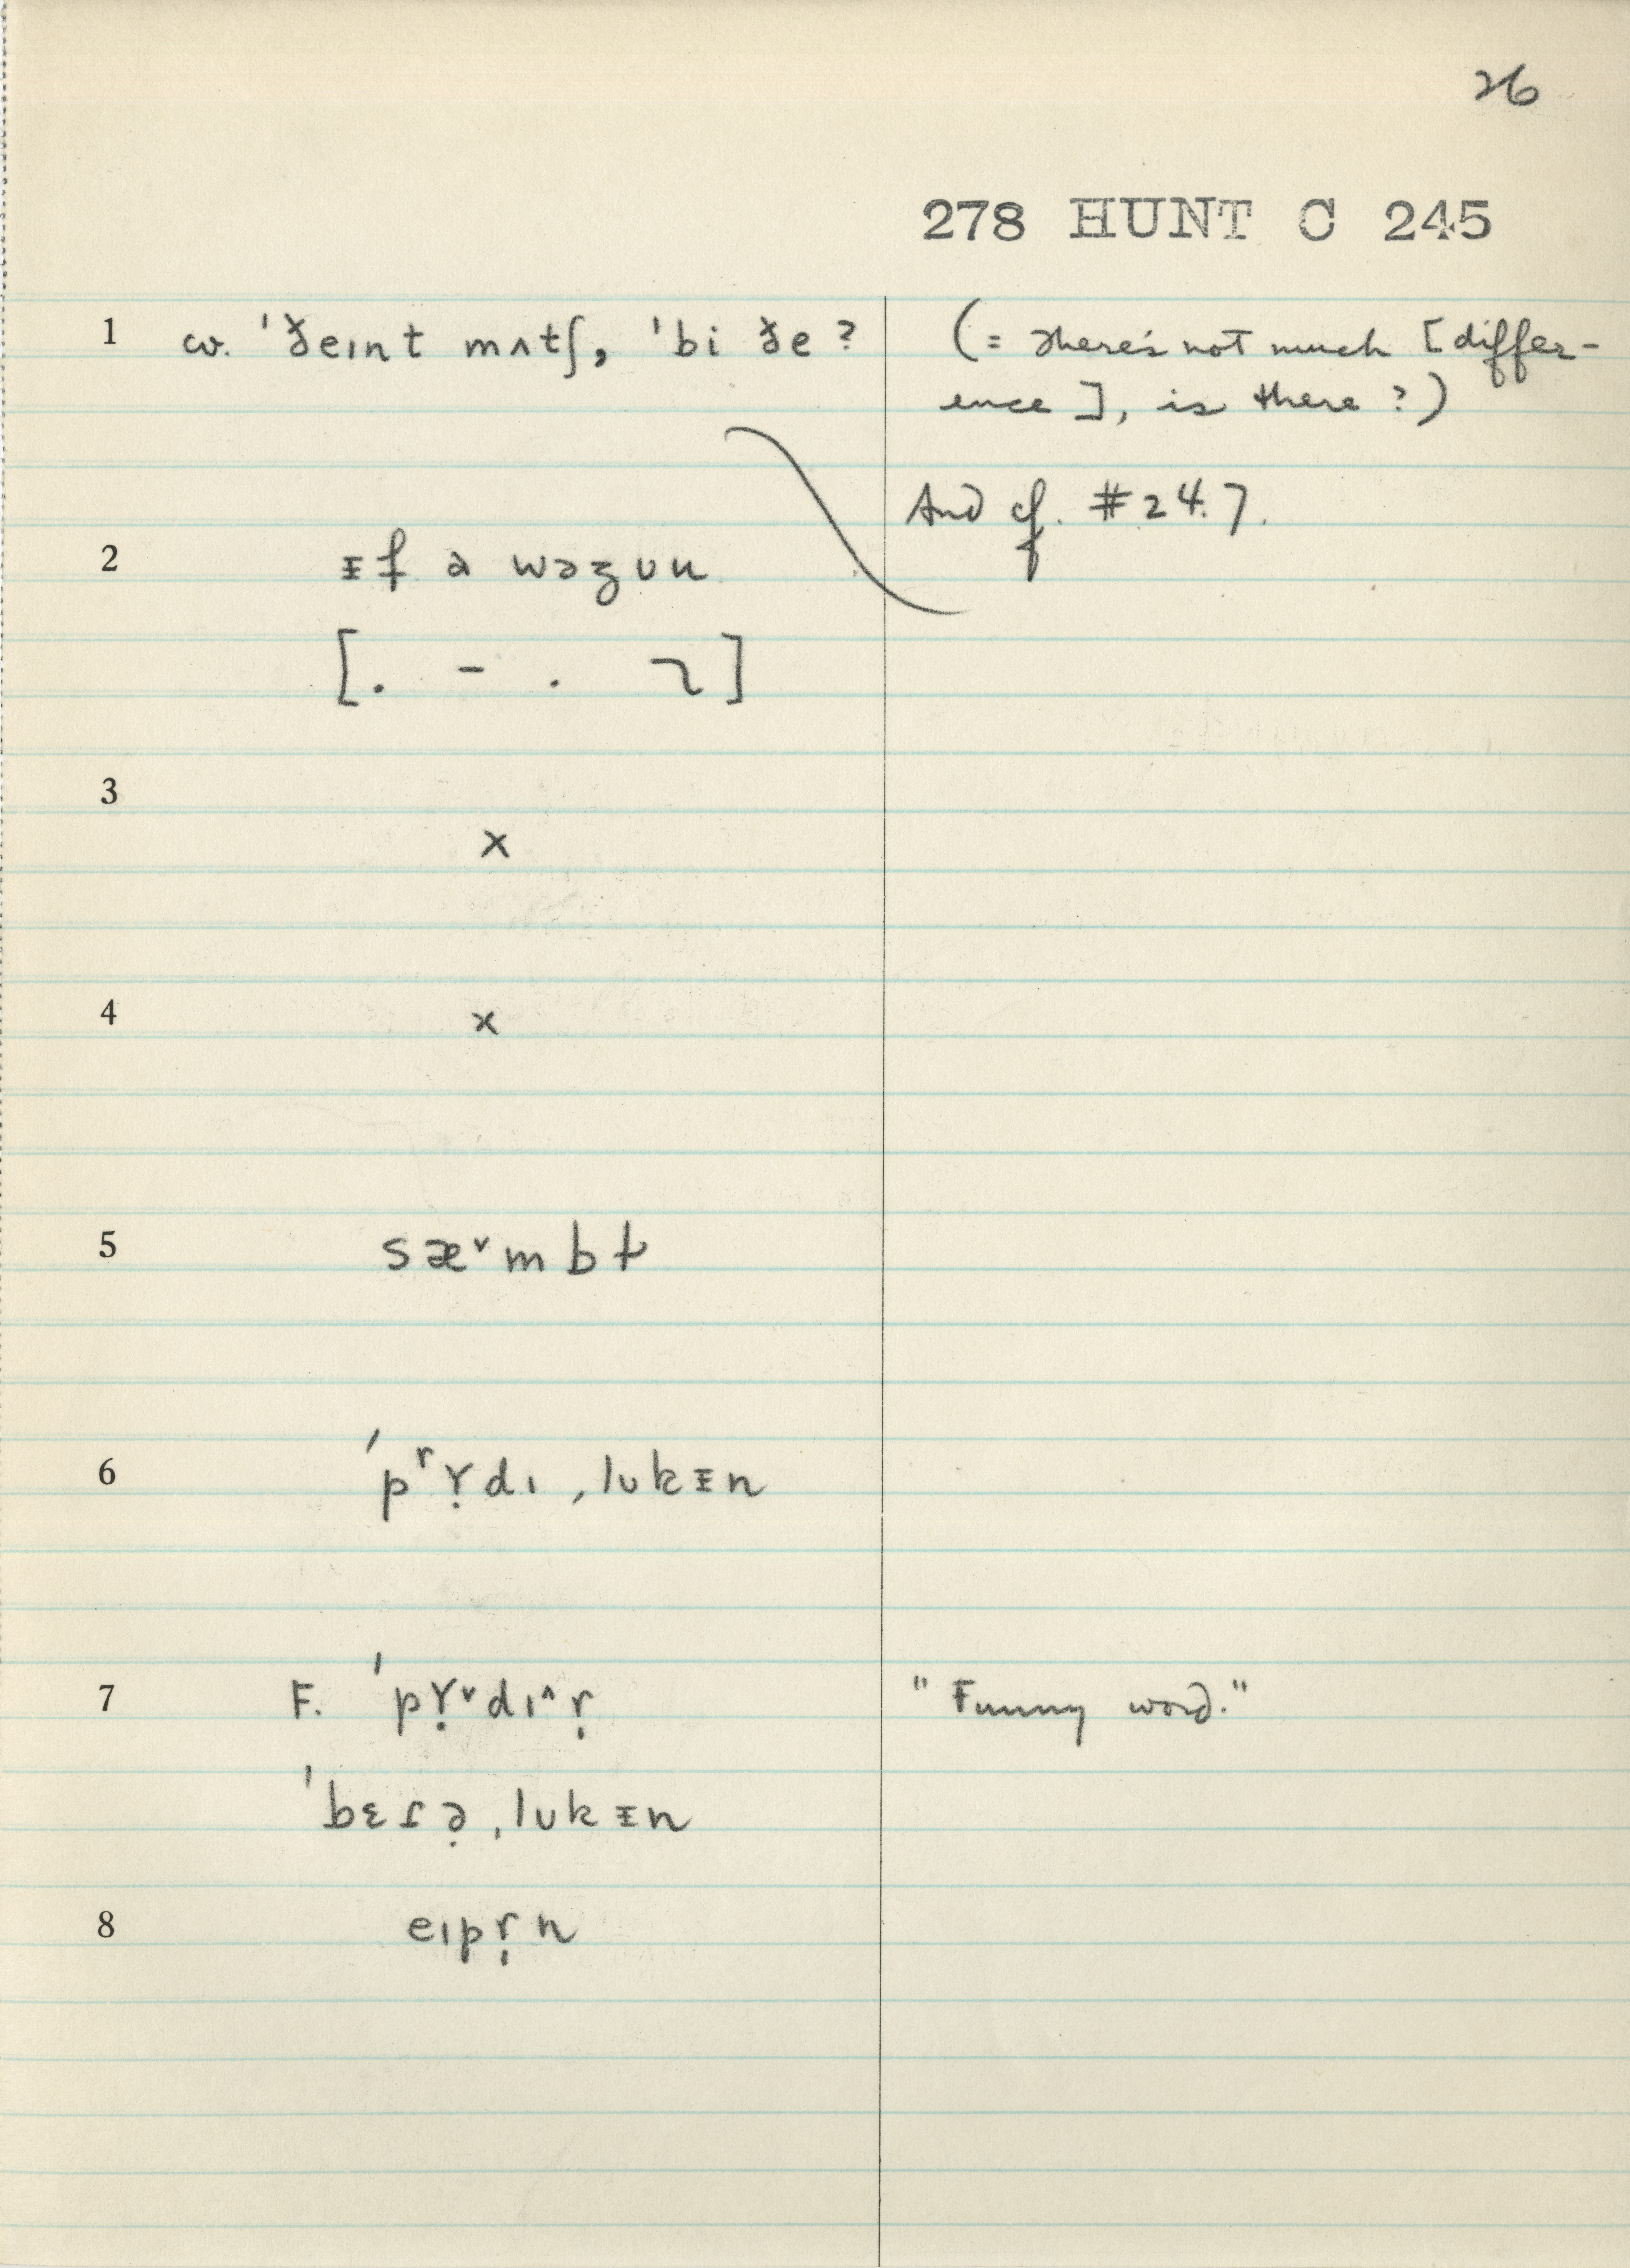 26
278 HUNT C 245
1 cv. ˈðeɪnt mʌtʃ, ˈbi ðe? (= there's not much [differ-
ence], is there?)
And cf. #24.7.
2 ᵻf ə wəʒʊn
[. - . ]
3 x
4 x
5 sæ˅mbɫ
6 ˈpʳɤ̣dɪˌlʊkᵻn
7 F. ˈpɤ̣˅dɪ˄ṛ "Funny word."
ˈbɛɾə̣ˌlʊkᵻn
8 eɪpṛn